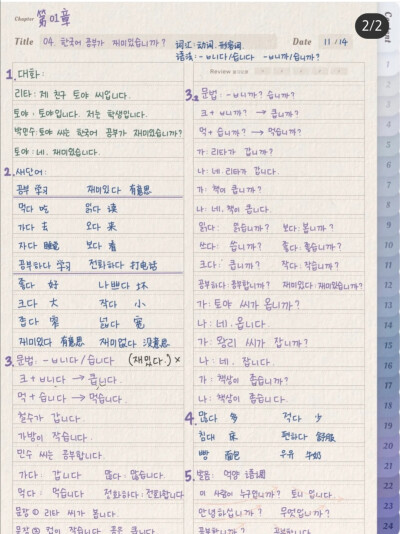 2/2
Chapter 第01章
Title 04. 한국어 공부가 재미있습니까? 词汇:动词.形容词. Date 11/14
语法:-ㅂ니다/습니다 -ㅂ니까/습니까?
1. 대화:
리타: 제 친구 토야 씨입니다.
토야: 토야입니다. 저는 학생입니다.
박민수: 토야 씨는 한국어 공부가 재미있습니까?
토야: 네. 재미있습니다.
2. 새단어:
공부 学习 재미있다 有意思
먹다 吃 읽다 读
가다 去 오다 来
자다 睡觉 보다 看
공부하다 学习 전화하다 打电话
좋다 好 나쁘다 坏
크다 大 작다 小
좁다 窄 넓다 宽
재미있다 有意思 재미없다 没意思
3. 문법: -ㅂ니다/습니다 (재있다.)×
크+ㅂ니다 → 큽니다.
먹+습니다 → 먹습니다.
철수가 갑니다.
가방이 작습니다.
민수 씨는 공부합니다.
가다: 갑니다 많다: 많습니다.
먹다: 먹습니다 전화하다: 전화합니다
문장 ① 리타 씨가 봅니다.
Review
3.2 문법: -ㅂ니까? 습니까?
크+ㅂ니까? → 큽니까?
먹+습니까? → 먹습니까?
가: 리타가 갑니까?
나: 네. 리타가 갑니다.
가: 책이 큽니까?
나: 네. 책이 큽니다.
읽다: 읽습니까? 보다: 봅니까?
쓰다: 씁니까? 좋다: 좋습니까?
크다: 큽니까? 작다: 작습니까?
공부하다: 공부합니까? 재미있다: 재미있습니까?
가: 토야 씨가 옵니까?
나: 네. 옵니다.
가: 왕리 씨가 잡니까?
나: 네. 잡니다.
가: 책상이 좁습니까?
나: 책상이 좁습니다.
4. 많다 多 적다 少
침대 床 편하다 舒服
빵 面包 우유 牛奶
5. 발음: 억양 语调
이 사람이 누구입니까? 토니 입니다.
안녕하십니까? 무엇입니까?
공부합니까? 공부합니다.
1
2
3
4
5
6
7
8
9
10
11
12
13
14
15
16
17
18
19
20
21
22
23
24